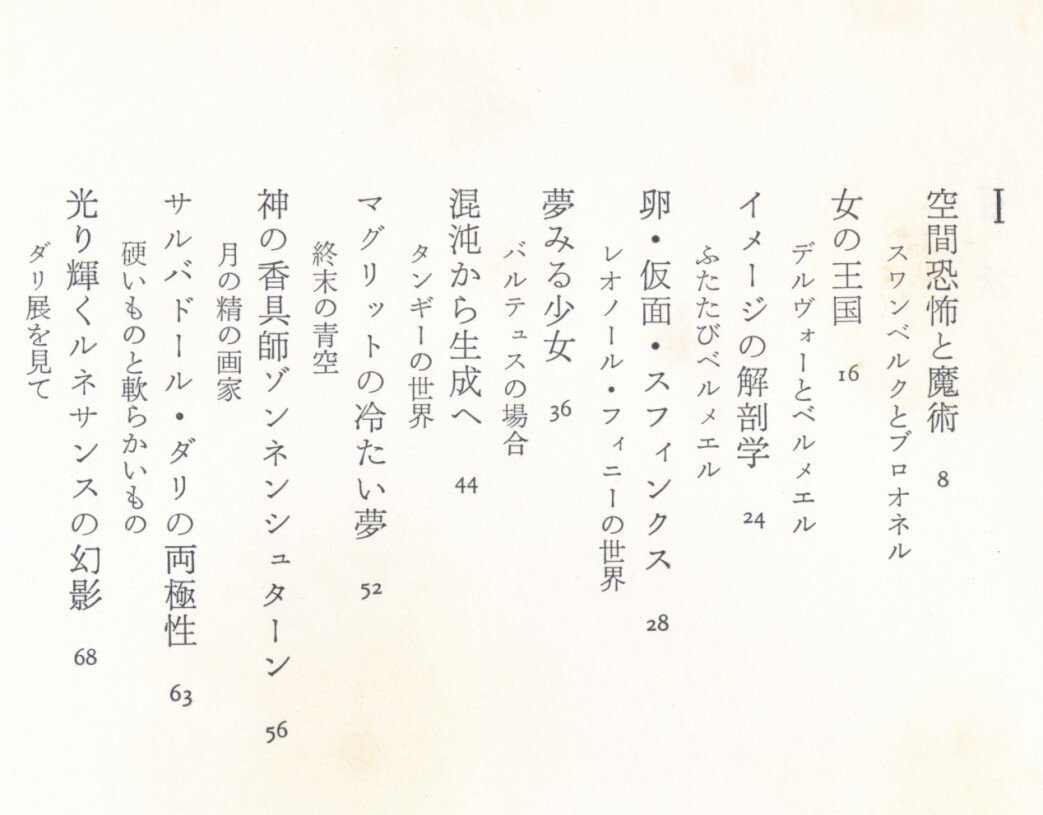 I
空間恐怖と魔術 8
スワンベルクとブロオネル
女の王国 16
デルヴォーとベルメエル
イメージの解剖学 24
ふたたびベルメエル
卵・仮面・スフィンクス 28
レオノール・フィニーの世界
夢みる少女 36
バルテュスの場合
混沌から生成へ 44
タンギーの世界
マグリットの冷たい夢 52
終末の青空
神の香具師ゾンネンシュターン 56
月の精の画家
サルバドール・ダリの両極性 63
硬いものと軟らかいもの
光り輝くルネサンスの幻影 68
ダリ展を見て